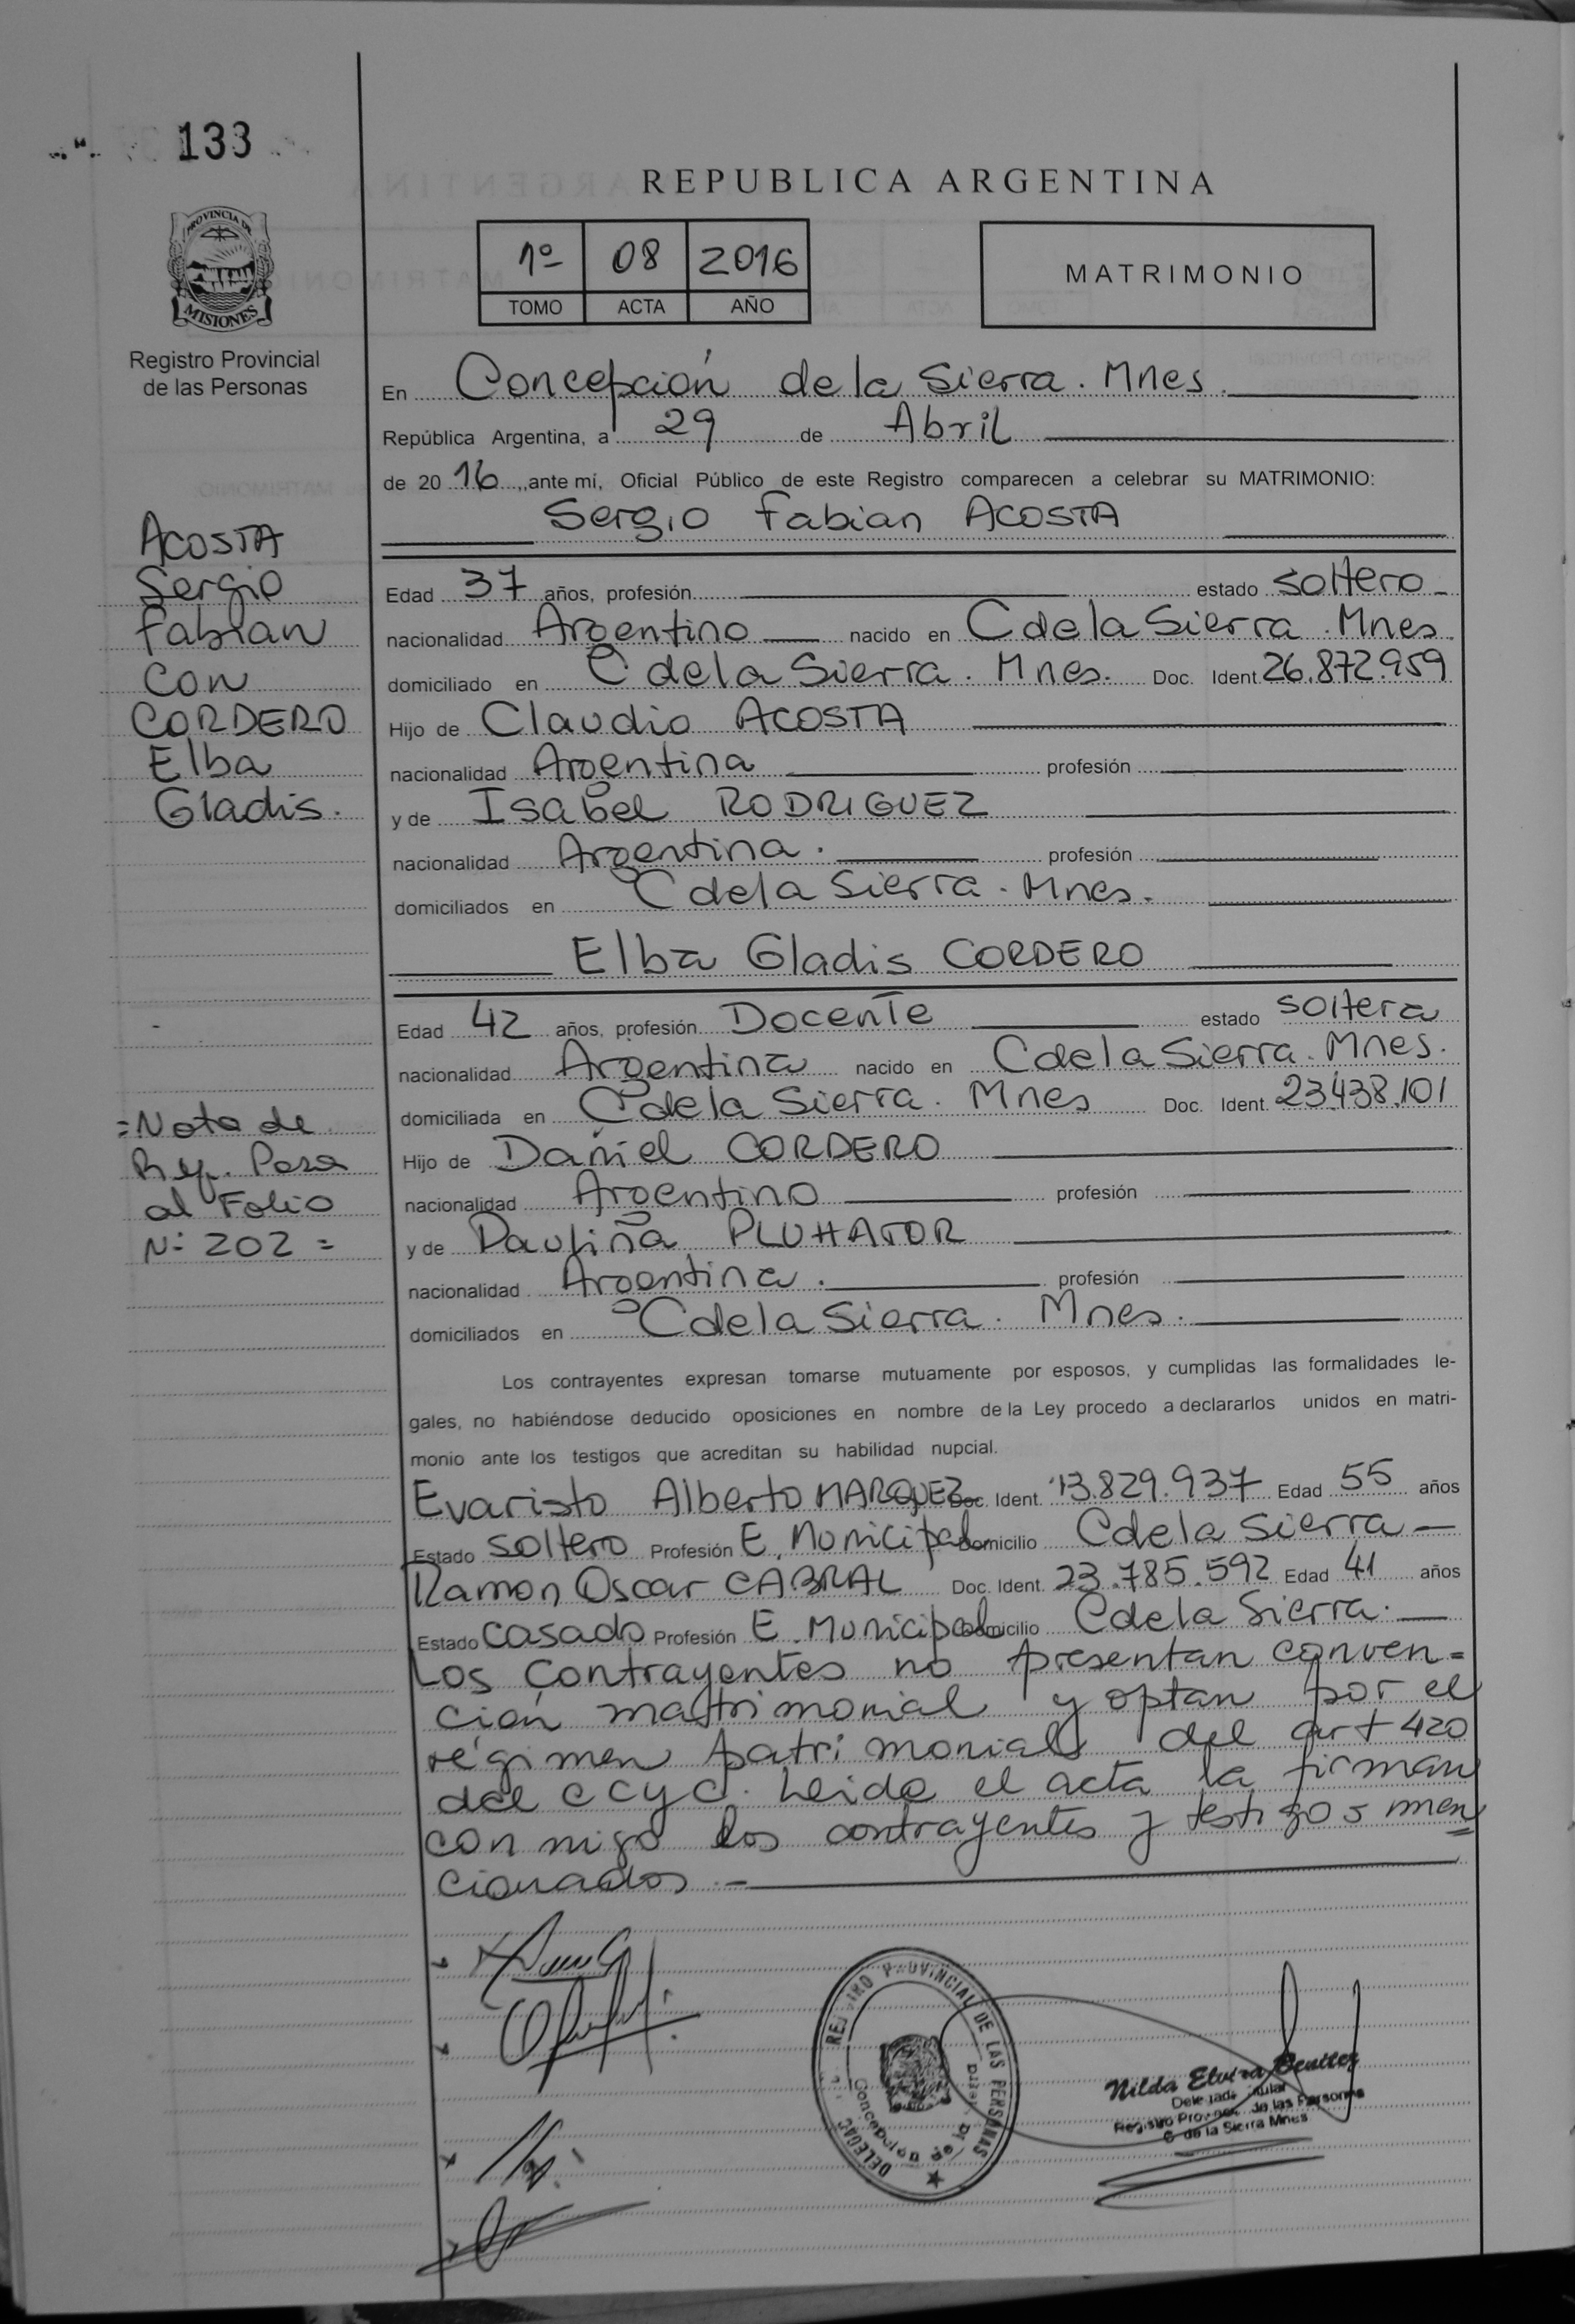 133
REPUBLICA ARGENTINA
PROVINCIA DE
MISIONES
Registro Provincial
de las Personas
1º 08 2016
TOMO ACTA AÑO
MATRIMONIO
ACOSTA
Sergio
Fabian
Con
CORDERO
Elba
Gladis.
=Nota de
Ref. Pasa
al Folio
Nº 202 =
En Concepción de la Sierra. Mnes.
República Argentina, a 29 de Abril
de 20 16, ante mí, Oficial Público de este Registro comparecen a celebrar su MATRIMONIO:
Sergio Fabian ACOSTA
Edad 37 años, profesión estado soltero
nacionalidad Argentino nacido en C de la Sierra. Mnes.
domiciliado en C de la Sierra. Mnes. Doc. Ident. 26.872.959
Hijo de Claudio ACOSTA
nacionalidad Argentina profesión
y de Isabel RODRIGUEZ
nacionalidad Argentina. profesión
domiciliados en C de la Sierra. Mnes.
Elba Gladis CORDERO
Edad 42 años, profesión Docente estado soltera
nacionalidad Argentina nacido en C de la Sierra. Mnes.
domiciliada en C de la Sierra. Mnes Doc. Ident. 23.438.101
Hijo de Daniel CORDERO
nacionalidad Argentino profesión
y de Paulina PLUHATOR
nacionalidad Argentina. profesión
domiciliados en C de la Sierra. Mnes.
Los contrayentes expresan tomarse mutuamente por esposos, y cumplidas las formalidades le-
gales, no habiéndose deducido oposiciones en nombre de la Ley procedo a declararlos unidos en matri-
monio ante los testigos que acreditan su habilidad nupcial.
Evaristo Alberto MARQUEZ Doc. Ident. 13.829.937 Edad 55 años
Estado soltero Profesión E. Municipal Domicilio C de la Sierra
Ramon Oscar CABRAL Doc. Ident. 23.785.592 Edad 41 años
Estado casado Profesión E. Municipal Domicilio C de la Sierra.
Los contrayentes no presentan conven=
ción matrimonial y optan por el
régimen patrimonial del art 420
del CCyC. Leida el acta la firman
conmigo los contrayentes y testigos men
cionados.-
REGISTRO PROVINCIAL DE LAS PERSONAS
Concepción de la Sierra
Nilda Elvira Benitez
Delegada Titular
Registro Provincial de las Personas
C. de la Sierra Mnes